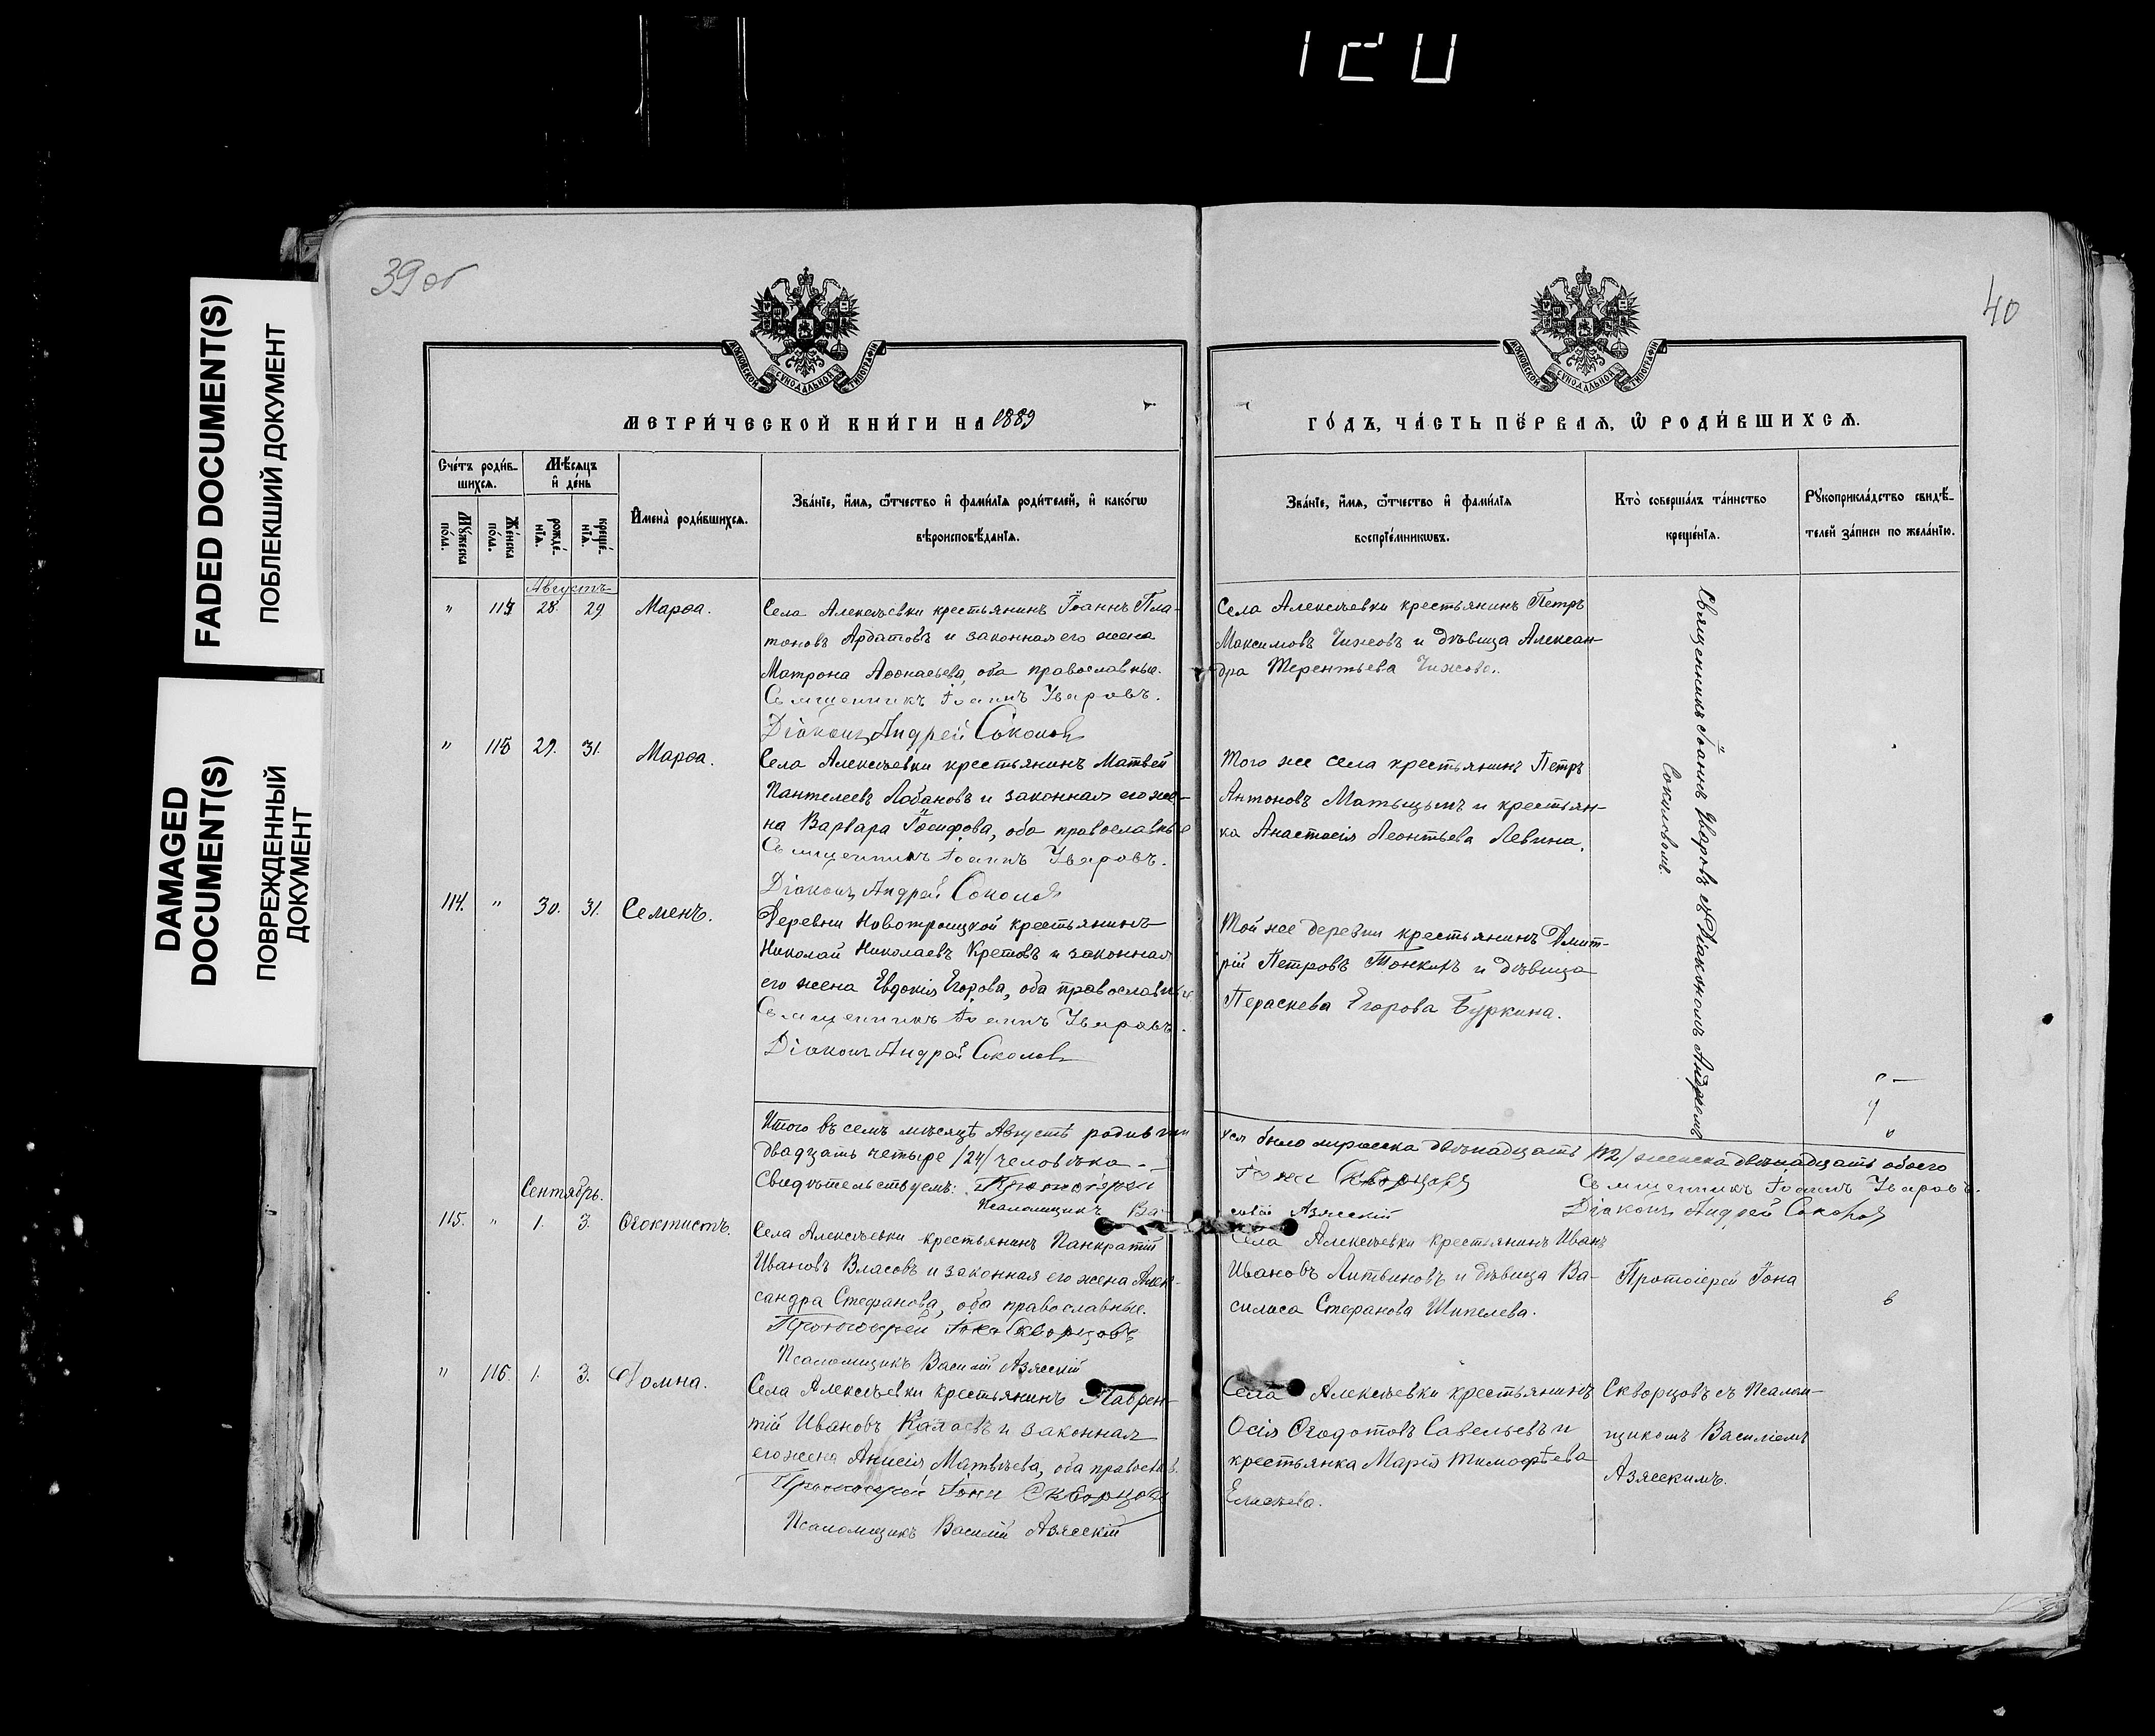 120
FADED DOCUMENT(S)
ПОБЛЕКШИЙ ДОКУМЕНТ
DAMAGED
DOCUMENT(S)
ПОВРЕЖДЕННЫЙ
ДОКУМЕНТ
39 об
40
МОСКОВСКОЙ СѴНОДАЛЬНОЙ ТИПОГРАФІИ
МОСКОВСКОЙ СѴНОДАЛЬНОЙ ТИПОГРАФІИ
МЕТРИ́ЧЕСКОЙ КНИ́ГИ НА 1889
ГО́ДЪ, ЧА́СТЬ ПЕ́РВАѦ, Ѽ РОДИ́ВШИХСѦ.
Сче́тъ роди́в-
шихсѧ.
Мꙋ́жеска
по́ла.
Же́нска
по́ла.
Мѣ́сѧцъ
и҆ де́нь
рожде́-
нїѧ.
креще́-
нїѧ.
И҆мена̀ роди́вшихсѧ.
Зва́нїе, и҆́мѧ, ѻ҆́тчество и҆ фами́лїѧ роди́телей, и҆ како́гѡ
вѣроисповѣ́данїѧ.
Зва́нїе, и҆́мѧ, ѻ҆́тчество и҆ фами́лїѧ
воспрїе́мникѡвъ.
Кто̀ соверша́лъ та́инство
креще́нїѧ.
Рꙋкоприкла́дство свидѣ́-
телей за́писи по жела́нїю.
Августъ
" 28. 29 Марѳа.
Села Алексѣевки крестьянинъ Іоаннъ Пла-
тоновъ Ардатовъ и законная его жена
Матрона Аѳонасьева, оба православные.
Священникъ Іоаннъ Уваровъ.
Діаконъ Андрей Соколовъ
Села Алексѣевки крестьянинъ Петръ
Максимовъ Чижовъ и дѣвица Алексан-
дра Терентьева Чижова.
Священникъ Іоаннъ Уваровъ съ Діакономъ Андреемъ
Соколовымъ.
" 29. 31. Марѳа.
Села Алексѣевки крестьянинъ Матвей
Пантелеевъ Лобановъ и законная его же-
на Варвара Іосифова, оба православные
Священникъ Іоаннъ Уваровъ.
Діаконъ Андрей Соколовъ
Того же села крестьянинъ Петръ
Антоновъ и крестьян-
ка Анастасія Леонтьева Левина.
114. " 30. 31. Семенъ.
Деревни Новотроицкой крестьянинъ
Николай Николаевъ Кретовъ и законная
его жена Евдокія Егорова, оба православные
Священникъ Іоаннъ Уваровъ.
Діаконъ Андрей Соколовъ
Той же деревни крестьянинъ Дмит-
рій Петровъ и дѣвица
Пераскева Егорова Буркина.
Итого въ семъ мѣсяцѣ Августѣ родивши
хся было мужеска двѣнадцать /12/ женска двѣнадцать обоего
двадцать четыре /24/ человѣка.
Свидѣтельствуемъ: Протоіерей
Іона Скворцовъ
Священникъ Іоаннъ Уваровъ.
Псаломщикъ Ва-
силій Азясскій
Діаконъ Андрей Соколовъ
Сентябрь.
115. " 1. 3. Ѳеоктистъ.
Села Алексѣевки крестьянинъ Панкратій
Ивановъ Власовъ и законная его жена Алек-
сандра Стефанова, оба православные.
Протоіерей Іона Скворцовъ
Псаломщикъ Василій Азясскій
Села Алексѣевки крестьянинъ Иванъ
Ивановъ Литвиновъ и дѣвица Ва-
силиса Стефанова Шипелева.
Протоіерей Іона
" 116. 1. 3. Домна.
Села Алексѣевки крестьянинъ Лаврен-
тій Ивановъ Калаевъ и законная
его жена Анисія Матвѣева, оба православ.
Протоіерей Іона Скворцовъ
Псаломщикъ Василій Азясскій
Села Алексѣевки крестьянинъ
Осія Ѳеодотовъ Савельевъ и
крестьянка Марія Тимофѣева
Скворцовъ съ Псалом-
щикомъ Василіемъ
Азясскимъ.